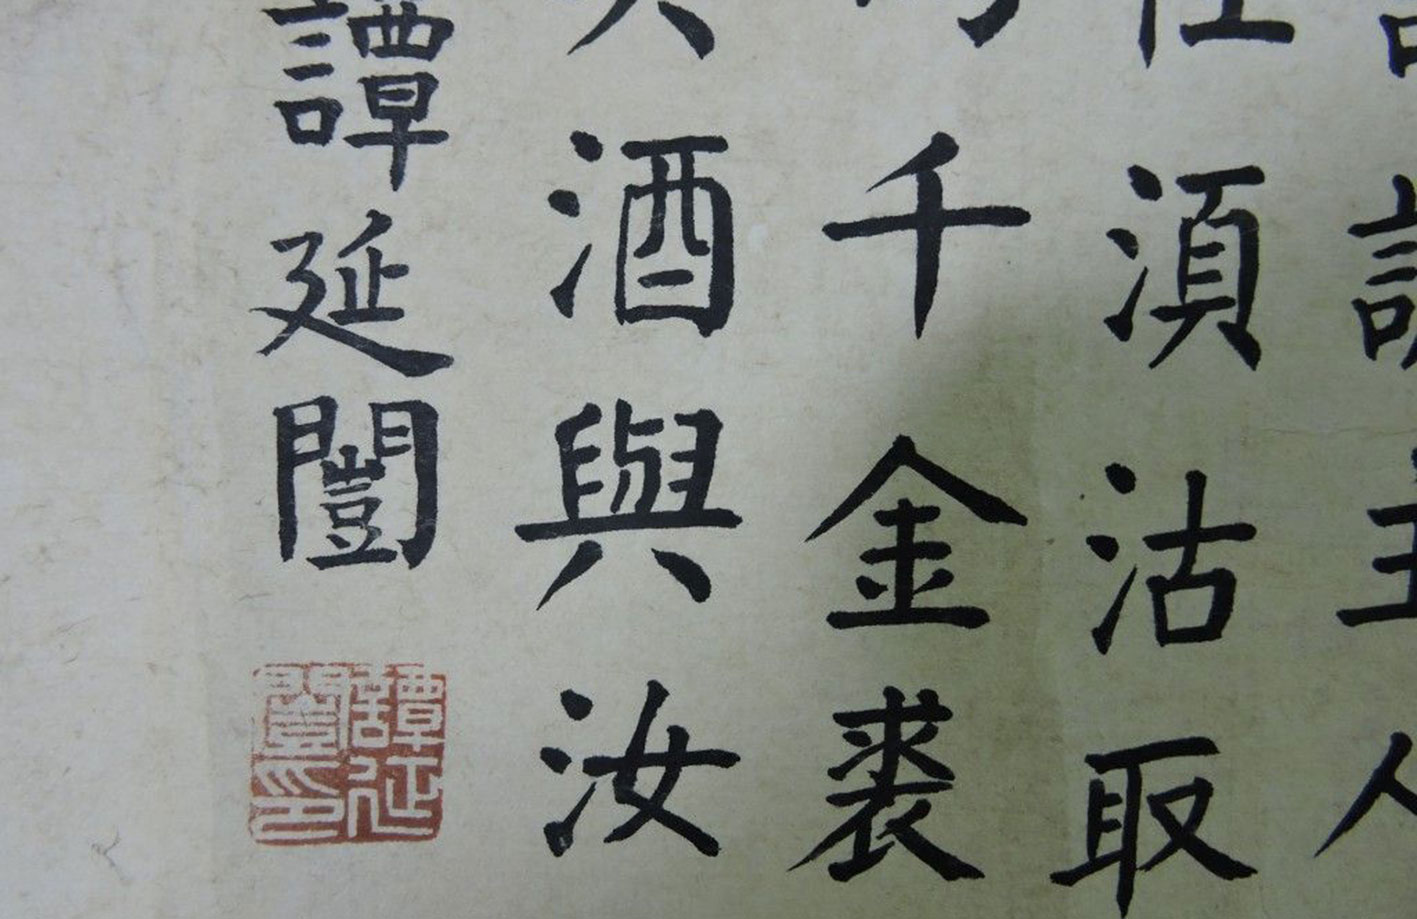 主人
湏沽取
千金裘
酒與汝
譚延闓
譚延闓印